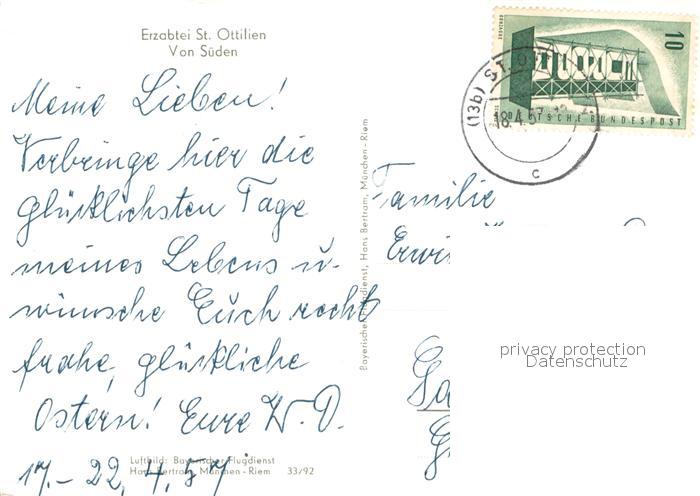 Erzabtei St. Ottilien
Von Süden
Meine Lieben!
Verbringe hier die
glücklichsten Tage
meines Lebens u.
wünsche Euch recht
frohe, glückliche
Ostern! Eure W. D.
17.- 22. 4. 57
Luftbild: Bayerischer Flugdienst
Hans Bertram, München - Riem 33/92
Bayerischer Flugdienst, Hans Bertram, München - Riem
10
DEUTSCHE BUNDESPOST
(13b) ST. O
18.4.57
c
Familie
Erwi
privacy protection
Datenschutz